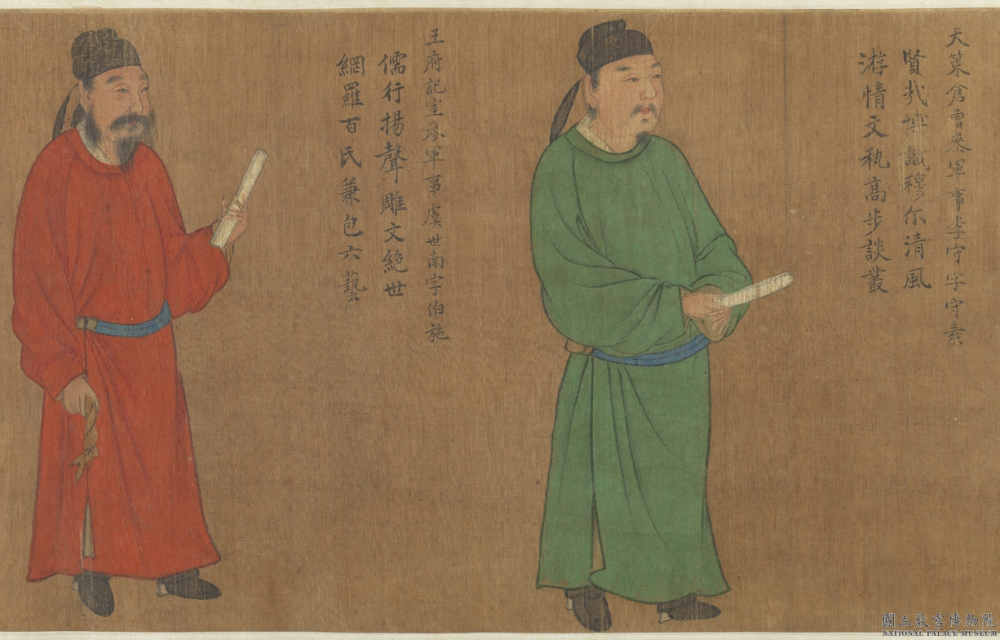 天策倉曹參軍事李守字守素
賢哉博識穆尒清風
游情文秇高步談叢
王府記室參軍事虞世南字伯施
儒行揚聲雕文絶世
網羅百氏兼包六藝
國立故宮博物院
NATIONAL PALACE MUSEUM